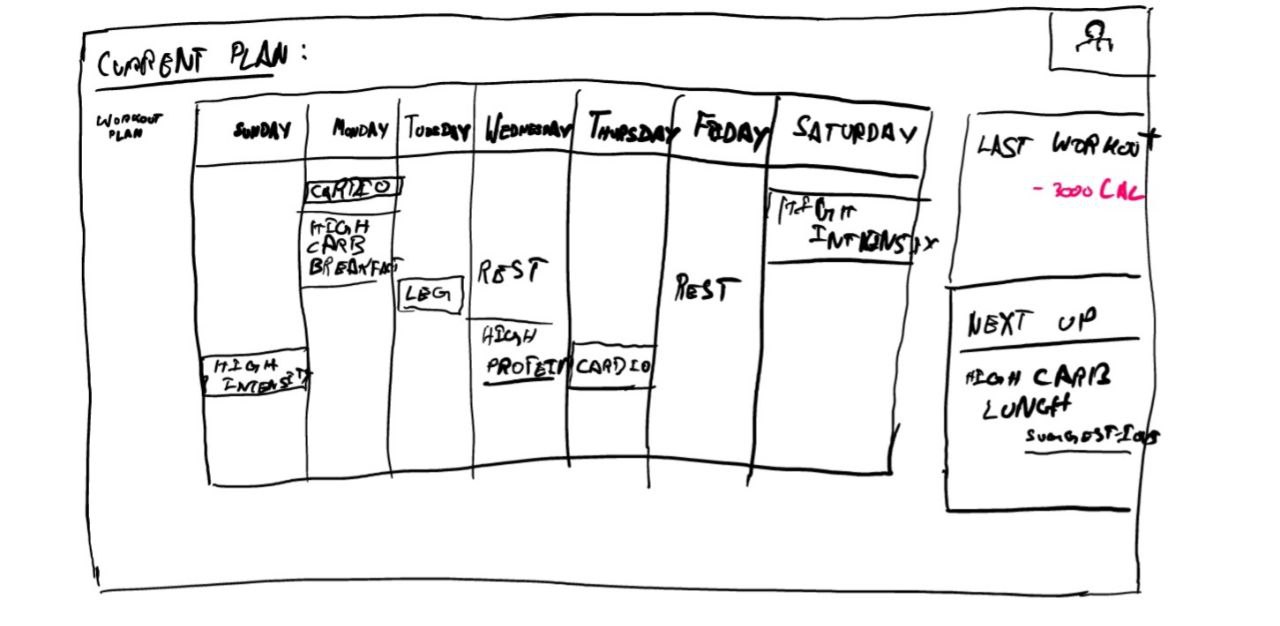 CURRENT PLAN:
WORKOUT
PLAN
SUNDAY MONDAY TUESDAY WEDNESDAY THURSDAY FRIDAY SATURDAY
HIGH
INTENSITY
CARDIO
HIGH
CARB
BREAKFAST
LEG
REST
HIGH
PROTEIN
CARDIO
REST
HIGH
INTENSITY
LAST WORKOUT
- 3000 CAL
NEXT UP
HIGH CARB
LUNCH
SUGGESTIONS